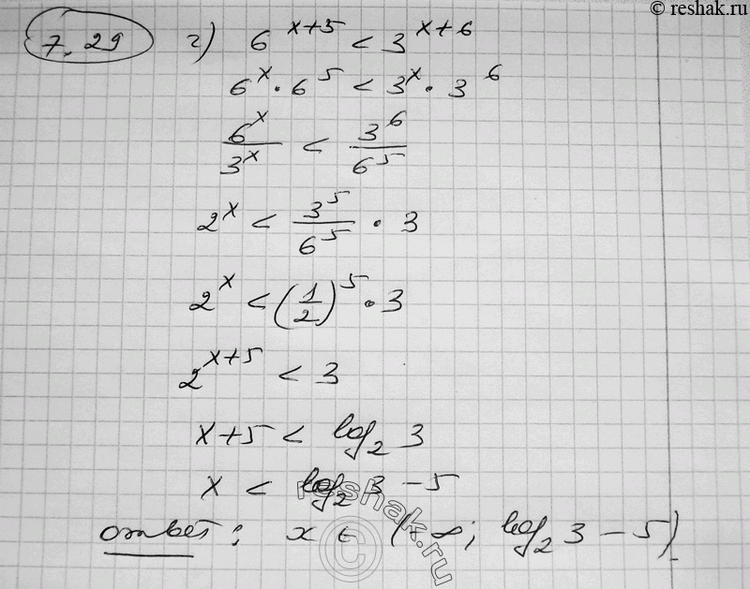 © reshak.ru
7.29 г) 6^{x+5} < 3^{x+6}
6^x · 6^5 < 3^x · 3^6
6^x / 3^x < 3^6 / 6^5
2^x < 3^5 / 6^5 · 3
2^x < (1/2)^5 · 3
2^{x+5} < 3
x+5 < log_2 3
x < log_2 3 - 5
ответ: x ∈ (-∞; log_2 3 - 5)
reshak.ru
©